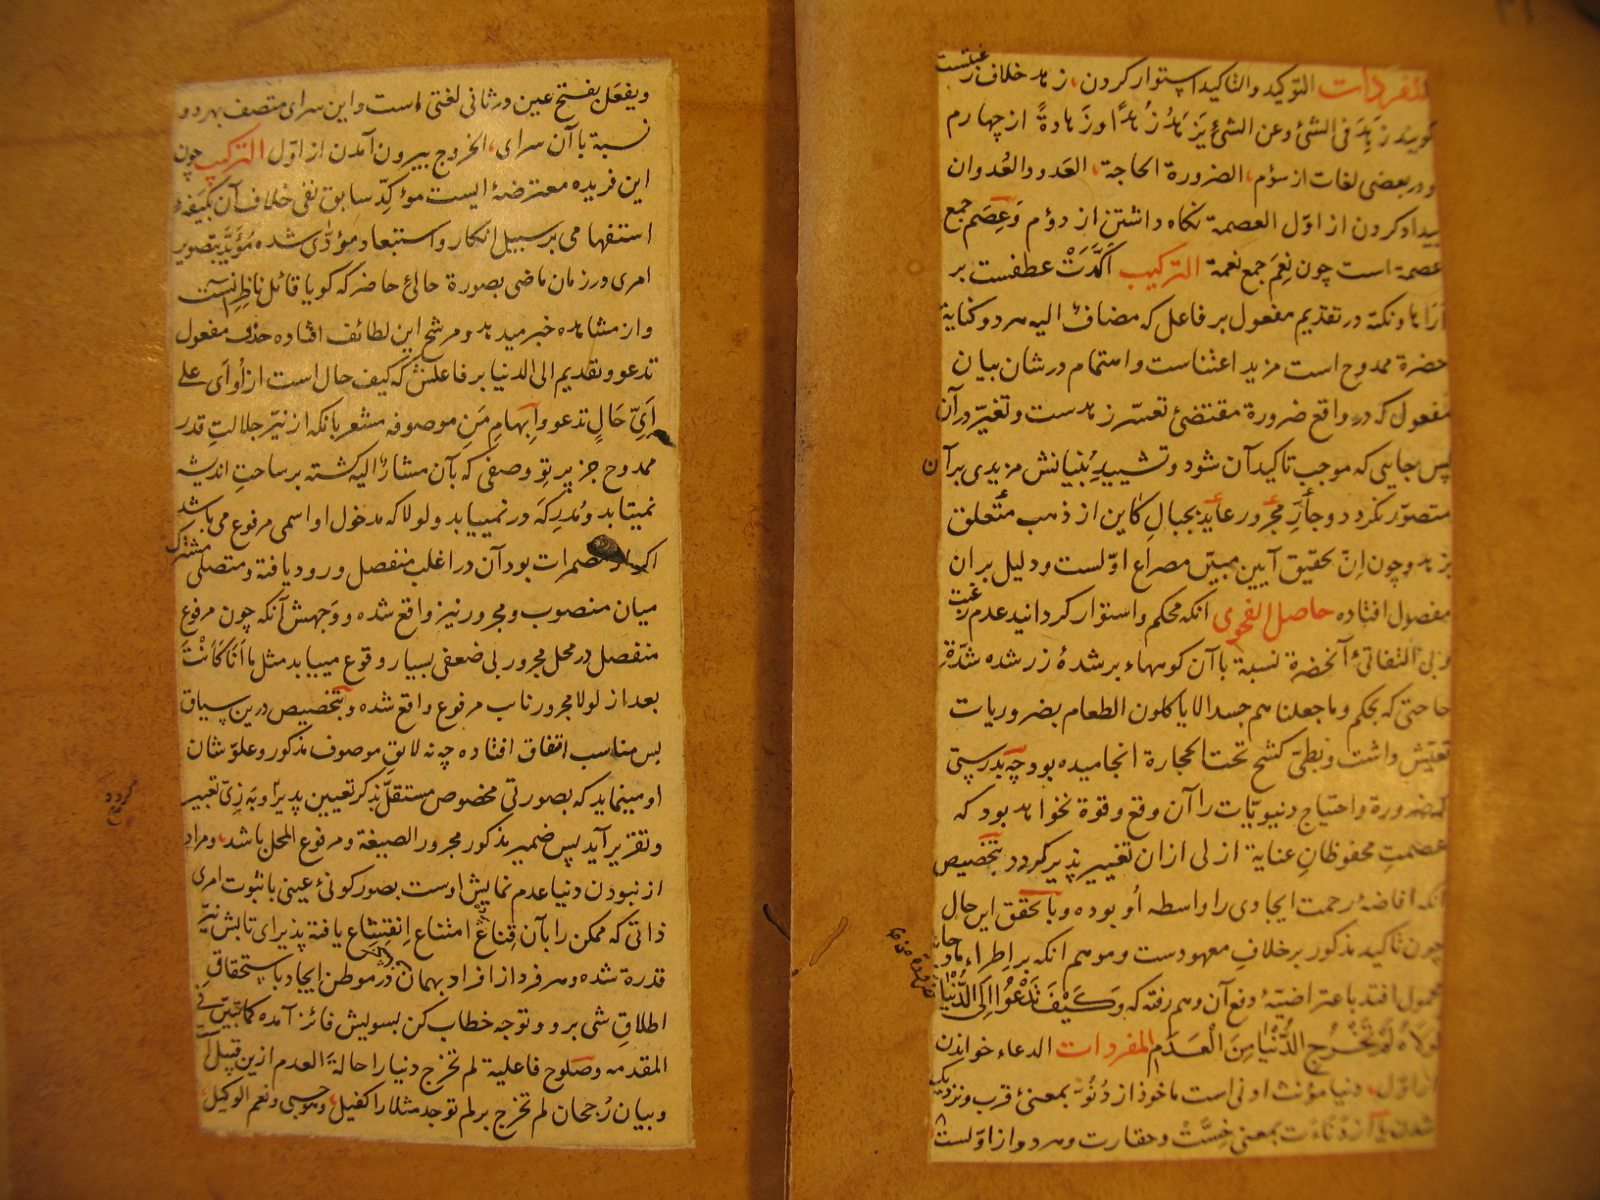 المفردات التوكید والتاکید استوار کردن، زهد خلاف رغبتست
کویند زَهِدَ فی الشئ وعن الشئ یَزهَدُ زُهدًا وزَهادةً از چهارم
ودر بعضی لغات از سؤم، الضرورة الحاجة، العَدو والعُدوان
بیداد کردن از اوّل العصمة نکاه داشتن از دؤم وَعِصَم جمع
عصمة است چون نِعَم جمع نعمة الترکیب اَکَّدَتْ عطفست بر
اَرَاها ونکتة در تقدیم مفعول بر فاعل که مضافْ الیه مردو کنایة
حضرة ممدوح است مزید اعتناست واهتمام در شان بیان
مفعول که در واقع ضرورة مقتضئ تعسّر زهدست وتغیّر در آن
پس جایی که موجب تاکید آن شود وتشییدِ بُنیانش مزیدی بر آن
متصوّر نکردد وجارّ مجرور عاید بجبالِ کاین از ذهب متعلق
بزهد وچون اِنّ تحقیق آیین مبیّن مصراع اوّلست ودلیل بر ان
مفصول افتاده حاصل الفحوی آنکه محکم واستوار کردانید عدم رغبت
وبی التفاتئ آنحضرة نسبة با آن کوههاء بر شدهٔ زر شده شدّة
حاحتی که بحکم وما جعلناهم جسدا لایاکلون الطعام بضروریات
تعیّش داشت وبطیّ کشح تحت الحجارة انجامیده بود چه بدرستی
کضرورة واحتیاج دنیویّات را آن وقع وقوة نخواهد بود که
عصمتِ محفوظانِ عنایة ازلی ازان تغییر پذیر کردد بتخصیص
آنکه افاضهٔ رحمت ایجادی را واسطه اُو بوده وبا تحقق این حال
چون تاکید مذکور بر خلافِ معهودست وموهم انکه بر اِطراء مادحانه
محمول افتد باعتراضیّهٔ دفع آن وهم رفته که وَکَیْفَ تَدْعُوْا اِلَی الدُّنْیَا ضَرُوْرَةُ مَنْ
لَوْلَاهُ لَمْ تُخْرَجِ الدُّنْیَا مِنَ الْعَدَمِ المفردات الدعاء خواندن
از اوّل، دنیا مؤنث ادنی است ماخوذ از دُنُوّ بمعنئ قرب ونزدیک
شدن یا از دَناءَت بمعنی خِسَّتْ وحقارت ومردو از اوّلست
ویفعَل بفتح عین در ثانی لغتی است واین سرای متصف بهر دو
نسبة با آن سرای، الخروج بیرون آمدن از اوّل الترکیب چون
این فریده معترضهٔ ایست مؤکِّد سابق نفی خلاف آن بکیف
استفهامی بر سبیل انکار واستبعاد مؤدّی شده مُؤَیَّد بتصویر
امری در زمان ماضی بصورة حالئ حاضر که کویا قائل ناظر آنست
واز مشاهده خبر میدهد ومرشح این لطائف افتاده حذف مفعول
تدعو وتقدیم الی الدنیا بر فاعلش که کیف حال است از اُو اَی علے
اَیِّ حَالٍ تدعو واِبهامِ مَن موصوفه مشعر بانکه از نیّر جلالتِ قدر
ممدوح جز پرتو وصفی که بآن مشارٌ الیه کشته بر ساحتِ اندیشه
نمیتابد ومُدرِکَه در نمییابد ولولا که مدخول او اسمی مرفوع می باشد
اکر از مضمرات بود آن در اغلب منفصل ورود یافته ومتصلی مشترک
میان منصوب ومجرور نیز واقع شده ووجهش آنکه چون مرفوع
منفصل در محل مجرور بی ضعفی بسیار وقوع مییابد مثل ما اَنَا کَاَنْتَ
بعد از لولا مجرور نایب مرفوع واقع شده وبتخصیص درین سیاق
بس مناسب اتفاق افتاده چه نه لایقِ موصوف مذکور وعلوّ شان
او مینماید که بصورتی مخصوص مستقلّ بذکر تعیین پذیرا وبه زِیّ تعبیر
وتقریر آید پس ضمیر مذکور مجرور الصیغة ومرفوع المحل باشد، ومراد
از نبودن دنیا عدم نمایش اوست بصور کونئ عینی با ثبوت امری
ذاتی که ممکن را بآن قِناعْ امتناع اِنقِشاع یافته پذیرای تابش نیّر
قدرة شده وهر فرد از افراد بهمان در موطن ایجاد باستحقاقِ
اطلاقِ شی برو وتوجه خطاب کن بسویش فائز آمده کما تبیّن فے
المقدمه وصلوح فاعلیة لم تخرج دنیا را حالة العدم ازین قبیل است
وبیان رُجحان لم تخرج بر لم توجد مثلا را کفیل، وهو حسبی ونعم الوکیل،
کردد